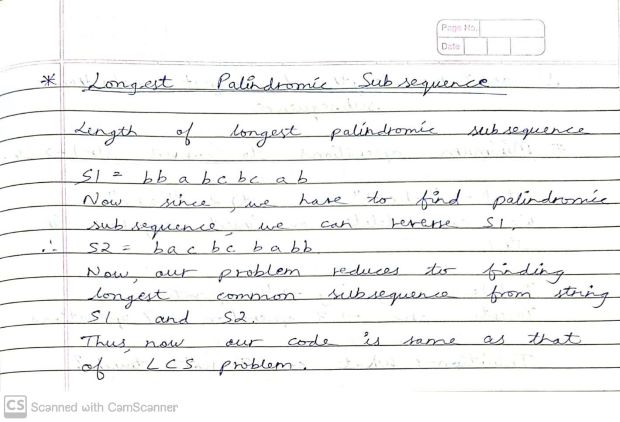 Page No.
Date
* Longest Palindromic Subsequence
Length of longest palindromic subsequence
S1 = bb a b c b c a b
Now since, we have to find palindromic
subsequence, we can reverse S1.
∴ S2 = b a c b c b a b b
Now, our problem reduces to finding
longest common subsequence from string
S1 and S2.
Thus, now our code is same as that
of LCS problem.
CS Scanned with CamScanner